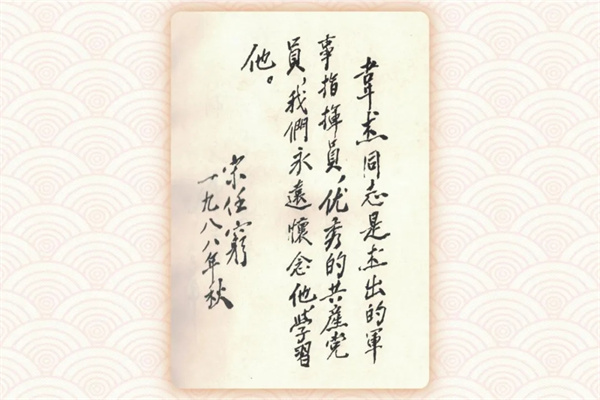 韋杰同志是杰出的軍
事指揮員,优秀的共産党
員,我們永遠懷念他,学習
他。
宋任窮
一九八八年秋